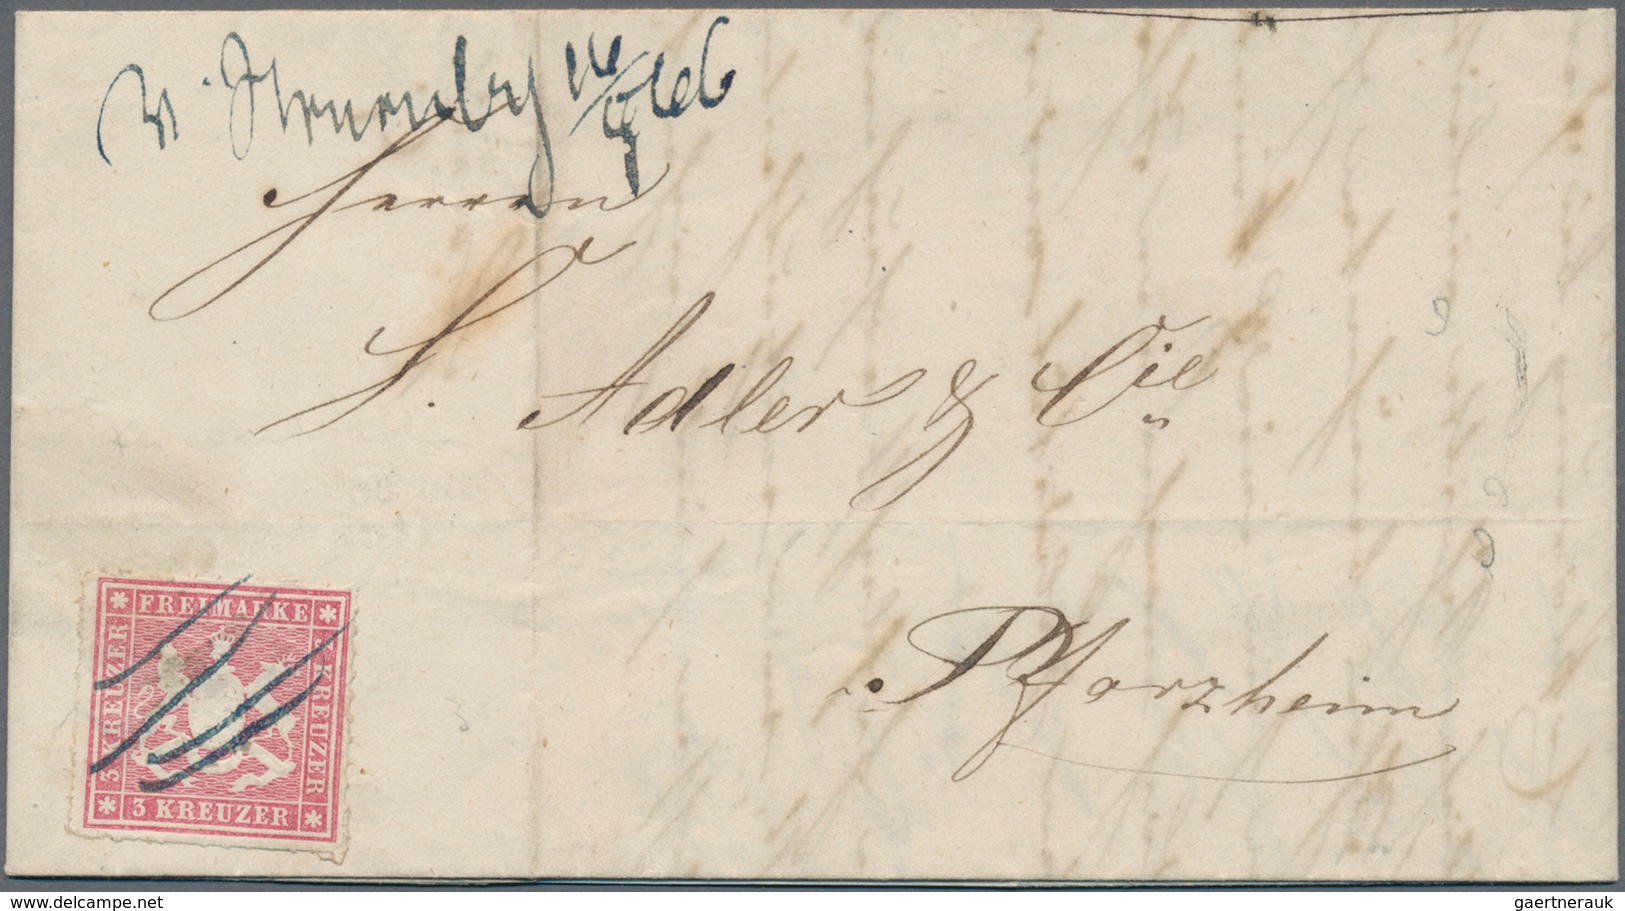 v. Neuenbürg 16/5 66
Herren
S. Adler & Cie
Pforzheim
FREIMARKE
3 KREUZER
3 KREUZER
3 KREUZER
delcampe.net
gaertnerauk